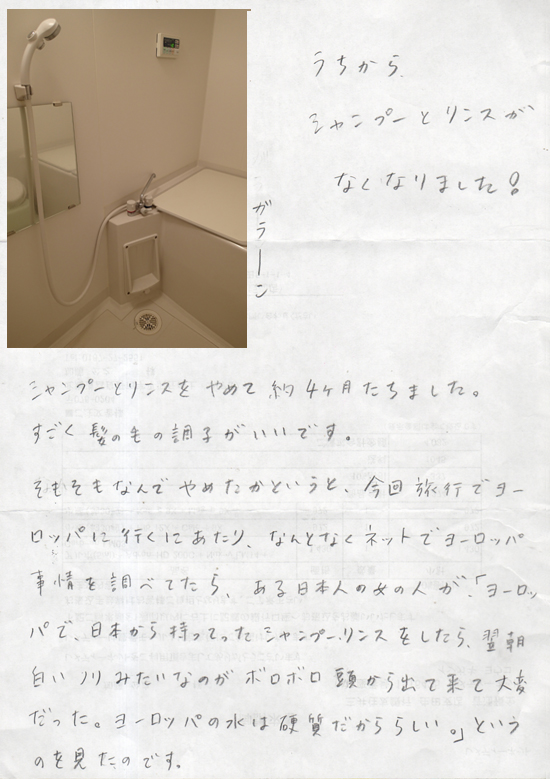 うちから
シャンプーとリンスが
なくなりました!
ガラーン
シャンプーとリンスを やめて 約4ヶ月たちました。
すごく髪の毛の調子がいいです。
そもそもなんでやめたかというと、今回旅行でヨー
ロッパに行くにあたり、なんとなくネットでヨーロッパ
事情を調べてたら、ある日本人の女の人が、「ヨーロッ
パで、日本から持ってったシャンプー、リンスをしたら、翌朝
白いノリみたいなのがボロボロ頭から出て来て大変
だった。ヨーロッパの水は硬質だかららしい。」という
のを見たのです。